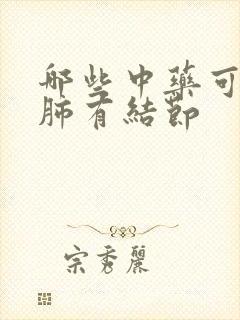 哪些中藥可
肺有結節
宗秀麗